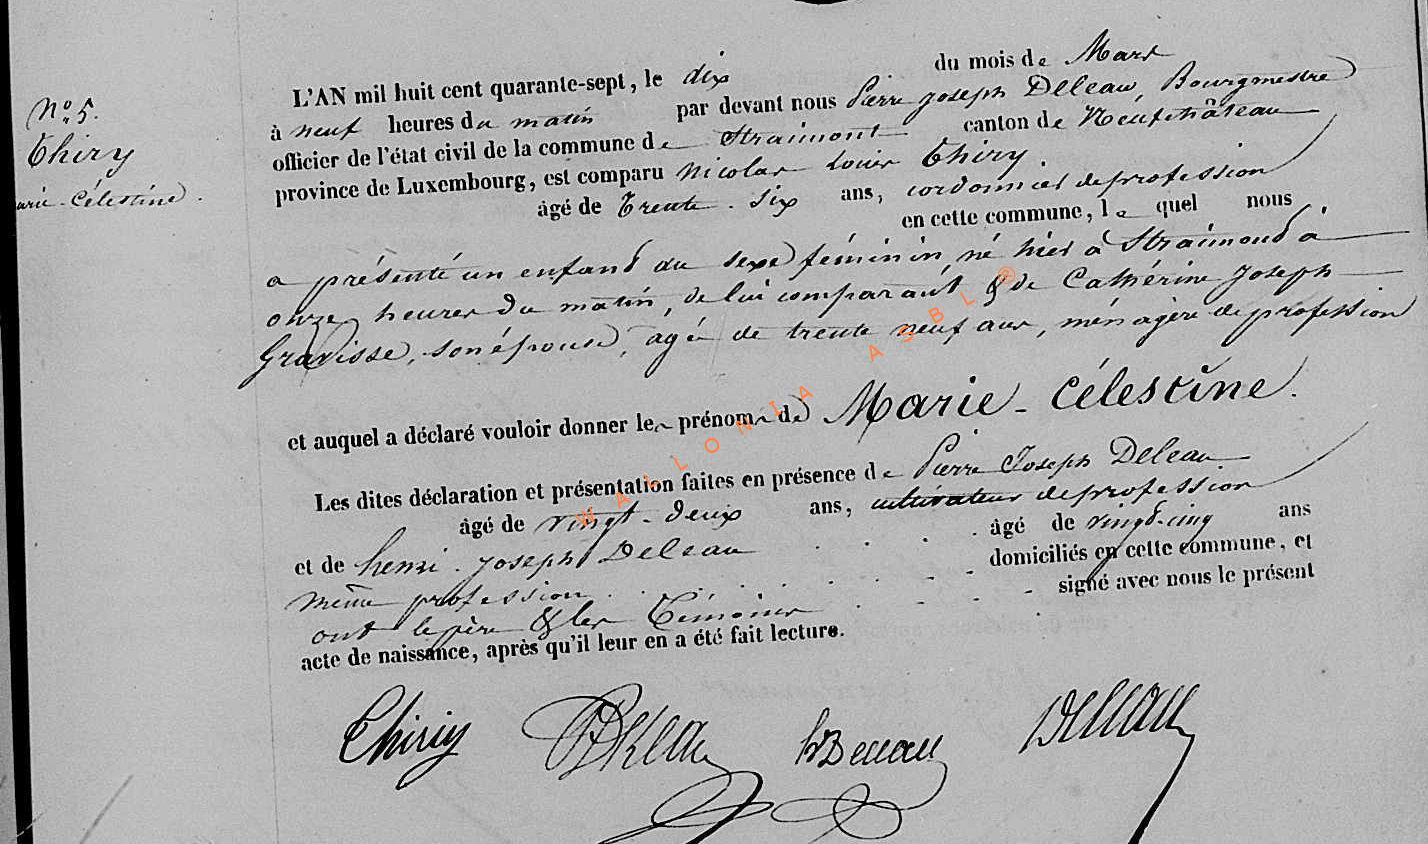 N° 5.
Thiry
arie-Célestine.
L'AN mil huit cent quarante-sept, le dix du mois de Mars
à neuf heures du matin par devant nous Pierre Joseph Deleau, Bourgmestre
officier de l'état civil de la commune de Straimont canton de Neufchâteau
province de Luxembourg, est comparu Nicolas Louis Thiry.
âgé de Trente-six ans, cordonnier de profession
en cette commune, lequel nous
a présenté un enfant du sexe féminin, né hier à Straimond à
onze heures du matin, de lui comparant & de Cathérine Joseph
Gravisse, son épouse, agée de trente neuf ans, ménagère de profession
et auquel a déclaré vouloir donner les prénoms de Marie-Célestine.
Les dites déclaration et présentation faites en présence de Pierre Joseph Deleau
âgé de vingt-deux ans, cultivateur de profession
et de henri-joseph Deleau âgé de vingt-cinq ans
même profession domiciliés en cette commune, et
ont le père & les Témoins signé avec nous le présent
acte de naissance, après qu'il leur en a été fait lecture.
Thiry PJDeleau hJDeleau Deleau
WALLONIA ASBL ®